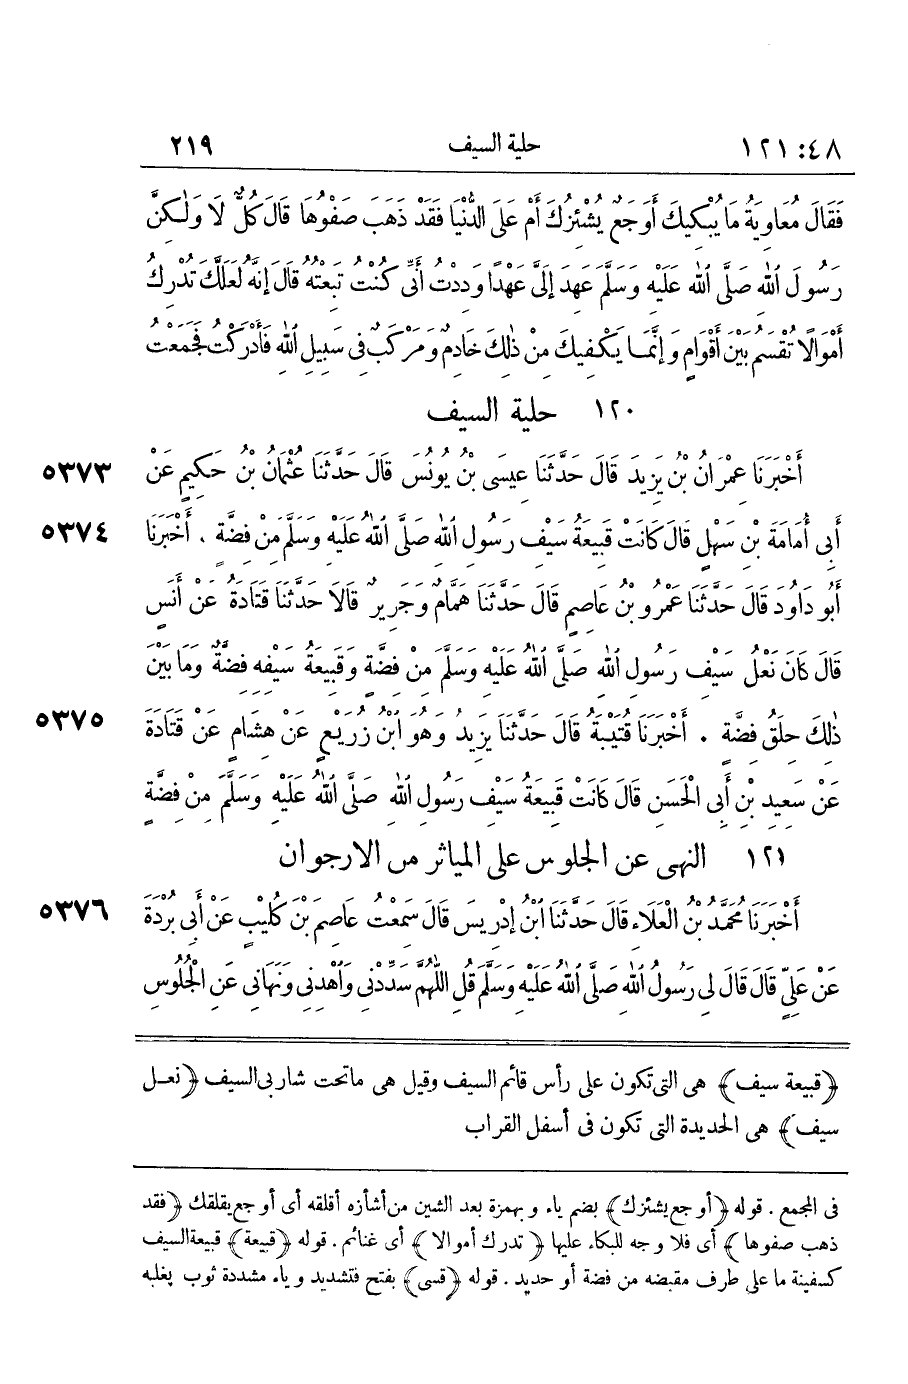 ٤٨: ١٢١ حلية السيف ٢١٩
فَقَالَ مُعَاوِيَةُ مَا يُبْكِيكَ أَوَجَعٌ يُشْئِزُكَ أَمْ عَلَى الدُّنْيَا فَقَدْ ذَهَبَ صَفْوُهَا قَالَ كُلٌّ لَا وَلَكِنَّ
رَسُولَ اللهِ صَلَّى اللهُ عَلَيْهِ وَسَلَّمَ عَهِدَ إِلَيَّ عَهْدًا وَدِدْتُ أَنِّي كُنْتُ تَبِعْتُهُ قَالَ إِنَّهُ لَعَلَّكَ تُدْرِكُ
أَمْوَالًا تُقْسَمُ بَيْنَ أَقْوَامٍ وَإِنَّمَا يَكْفِيكَ مِنْ ذَلِكَ خَادِمٌ وَمَرْكَبٌ فِي سَبِيلِ اللهِ فَأَدْرَكْتُ فَجَمَعْتُ
١٢٠ حلية السيف
أَخْبَرَنَا عِمْرَانُ بْنُ يَزِيدَ قَالَ حَدَّثَنَا عِيسَى بْنُ يُونُسَ قَالَ حَدَّثَنَا عُثْمَانُ بْنُ حَكِيمٍ عَنْ ٥٣٧٣
أَبِي أُمَامَةَ بْنِ سَهْلٍ قَالَ كَانَتْ قَبِيعَةُ سَيْفِ رَسُولِ اللهِ صَلَّى اللهُ عَلَيْهِ وَسَلَّمَ مِنْ فِضَّةٍ . أَخْبَرَنَا ٥٣٧٤
أَبُو دَاوُدَ قَالَ حَدَّثَنَا عَمْرُو بْنُ عَاصِمٍ قَالَ حَدَّثَنَا هَمَّامٌ وَجَرِيرٌ قَالَا حَدَّثَنَا قَتَادَةُ عَنْ أَنَسٍ
قَالَ كَانَ نَعْلُ سَيْفِ رَسُولِ اللهِ صَلَّى اللهُ عَلَيْهِ وَسَلَّمَ مِنْ فِضَّةٍ وَقَبِيعَةُ سَيْفِهِ فِضَّةٌ وَمَا بَيْنَ
ذَلِكَ حِلَقُ فِضَّةٍ . أَخْبَرَنَا قُتَيْبَةُ قَالَ حَدَّثَنَا يَزِيدُ وَهُوَ ابْنُ زُرَيْعٍ عَنْ هِشَامٍ عَنْ قَتَادَةَ ٥٣٧٥
عَنْ سَعِيدِ بْنِ أَبِي الْحَسَنِ قَالَ كَانَتْ قَبِيعَةُ سَيْفِ رَسُولِ اللهِ صَلَّى اللهُ عَلَيْهِ وَسَلَّمَ مِنْ فِضَّةٍ
١٢١ النهى عن الجلوس على المياثر من الارجوان
أَخْبَرَنَا مُحَمَّدُ بْنُ الْعَلَاءِ قَالَ حَدَّثَنَا ابْنُ إِدْرِيسَ قَالَ سَمِعْتُ عَاصِمَ بْنَ كُلَيْبٍ عَنْ أَبِي بُرْدَةَ ٥٣٧٦
عَنْ عَلِيٍّ قَالَ قَالَ لِي رَسُولُ اللهِ صَلَّى اللهُ عَلَيْهِ وَسَلَّمَ قُلِ اللَّهُمَّ سَدِّدْنِي وَاهْدِنِي وَنَهَانِي عَنِ الْجُلُوسِ
﴿قبيعة سيف﴾ هى التى تكون على رأس قائم السيف وقيل هى ماتحت شاربى السيف ﴿نعل
سيف﴾ هى الحديدة التى تكون فى أسفل القراب
فى المجمع . قوله ﴿أوجع يشئزك﴾ بضم ياء وبهمزة بعد الشين من أشأزه أقلقه أى أوجع يقلقك ﴿فقد
ذهب صفوها﴾ أى فلا وجه للبكاء عليها ﴿تدرك أموالا﴾ أى غنائم . قوله ﴿قبيعة﴾ قبيعة السيف
كسفينة ما على طرف مقبضه من فضة أو حديد . قوله ﴿قسى﴾ بفتح فتشديد وياء مشددة ثوب يغلبه